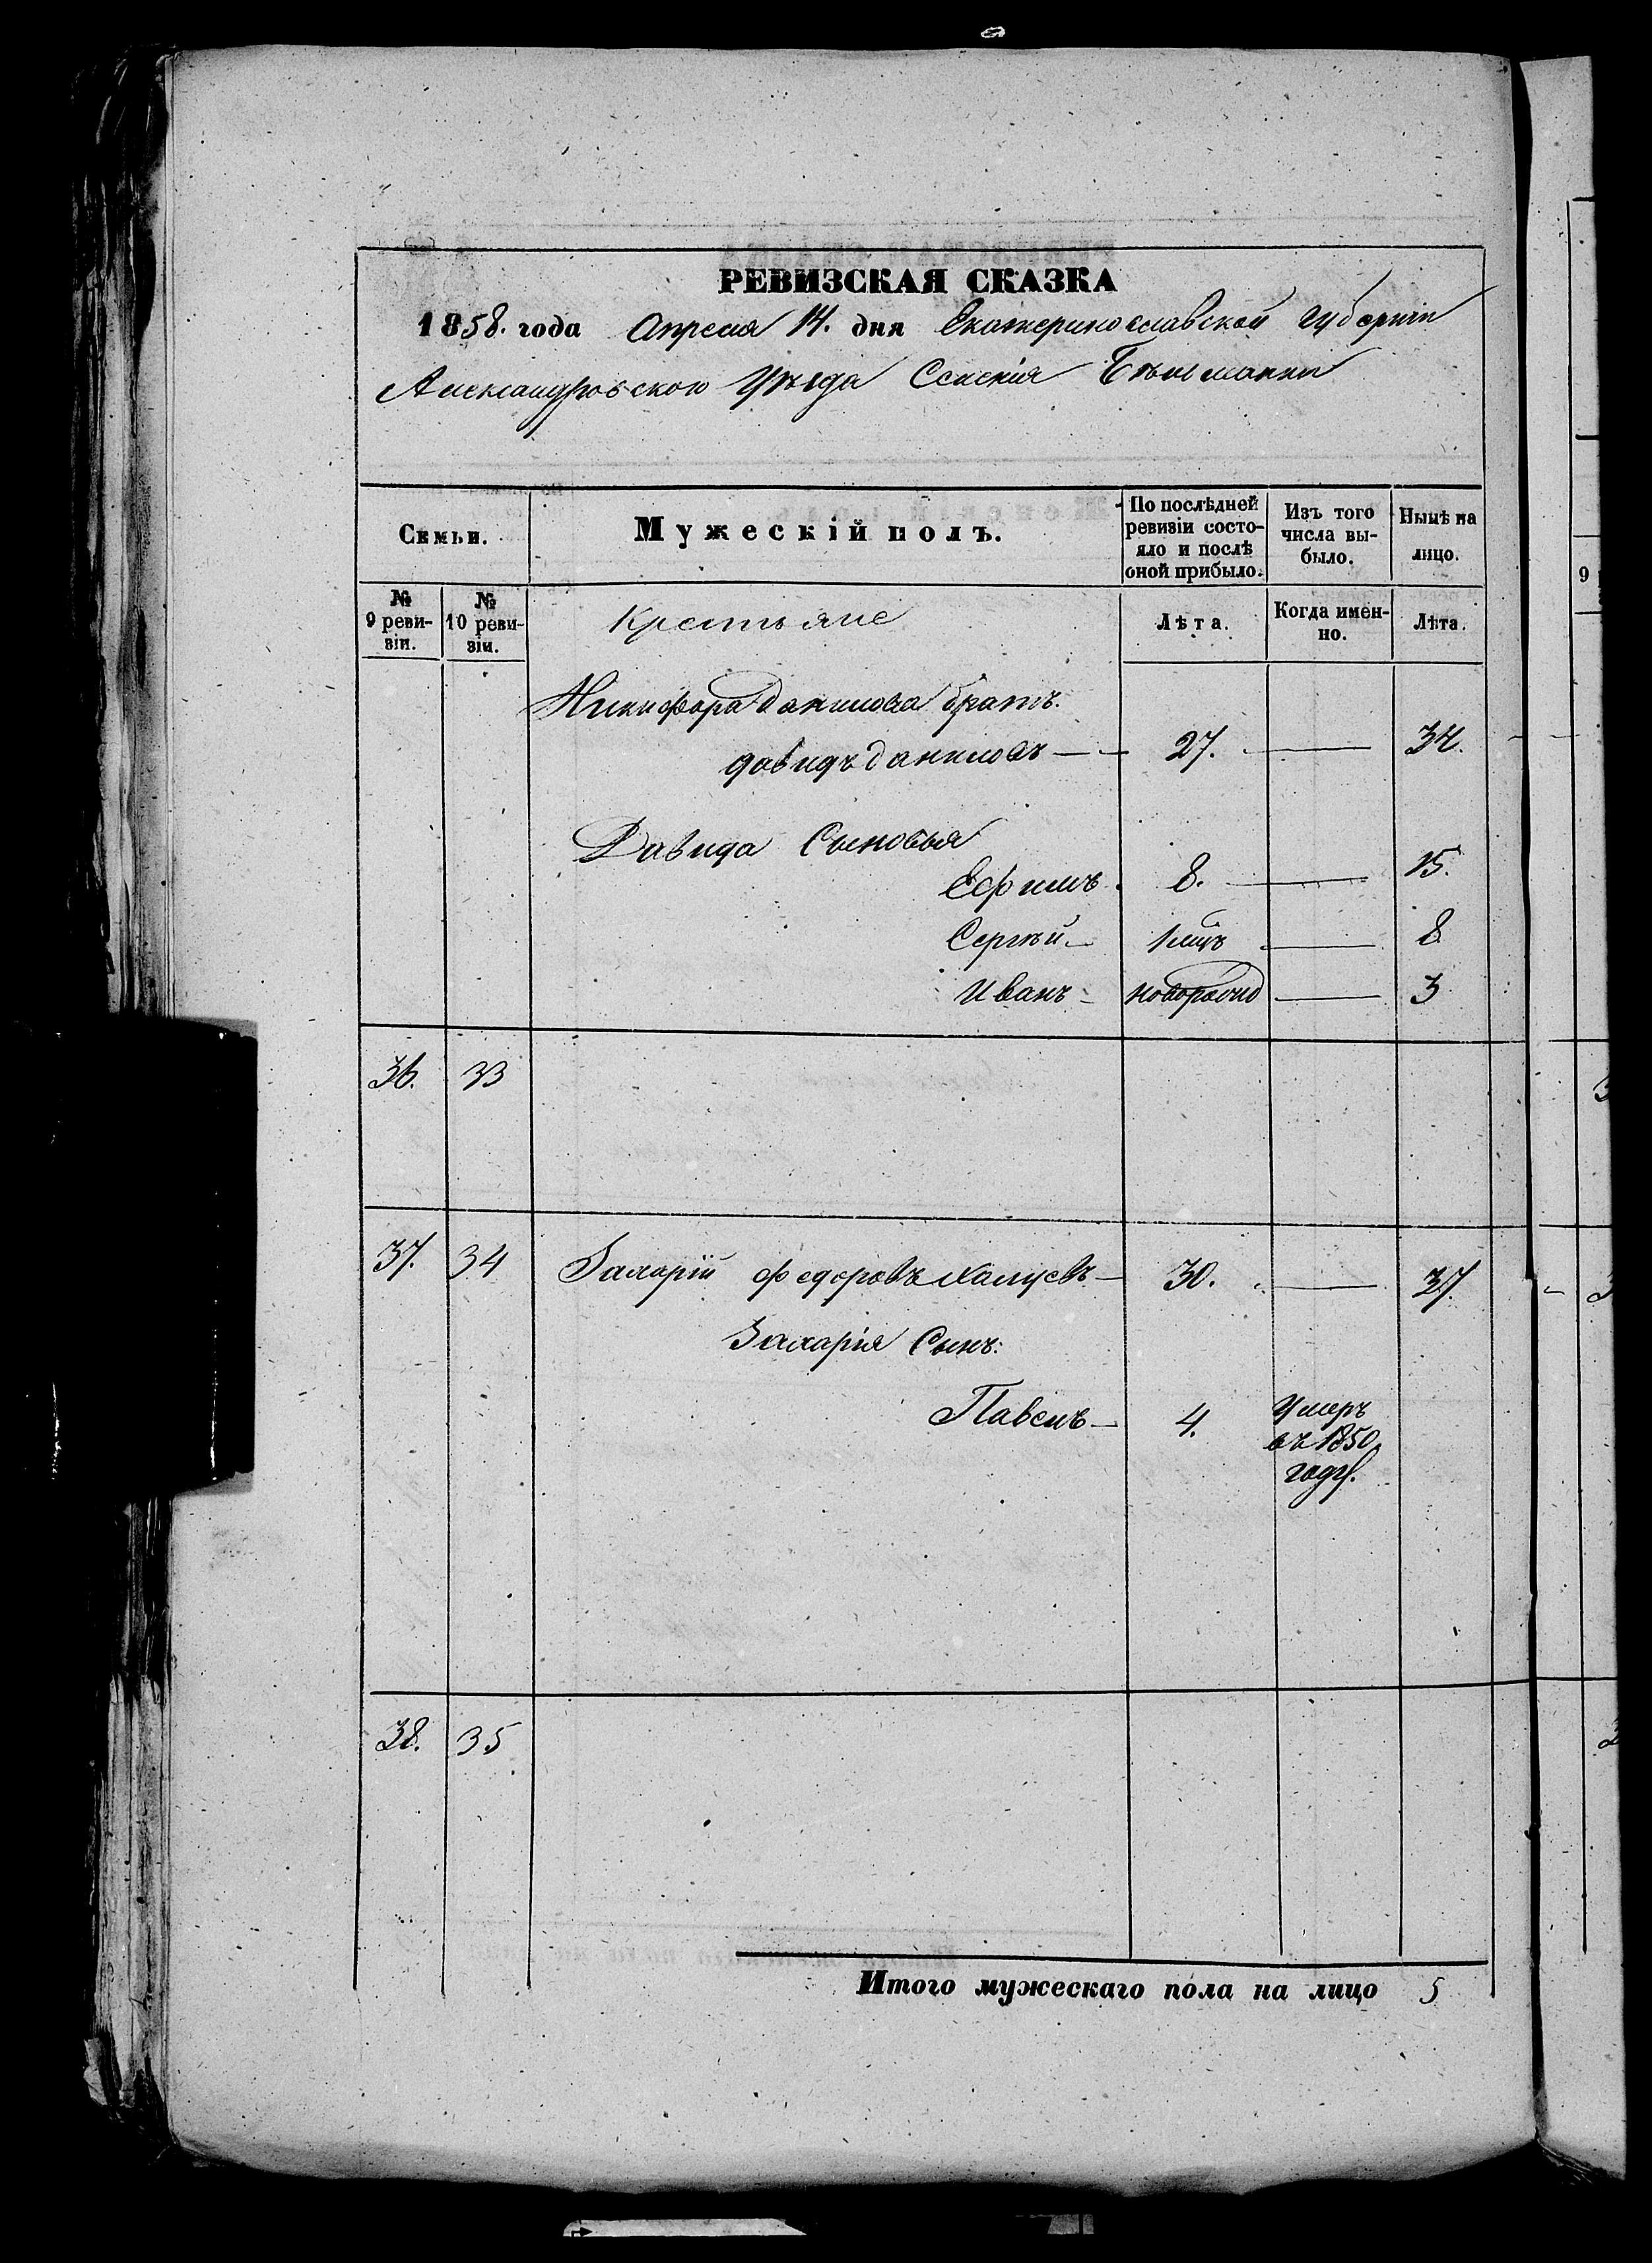 РЕВИЗСКАЯ СКАЗКА
1858. года Апреля 14. дня Екатеринославской губерніи
Александровского Уѣзда Селенія Бѣльманки
Семьи.
Мужескій полъ.
По послѣдней ревизіи состо-
яло и послѣ оной прибыло.
Изъ того числа вы-
было.
Нынѣ на лицо.
№ 9 реви-
зіи.
№ 10 реви-
зіи.
Крестьяне
Лѣта.
Когда имен-
но.
Лѣта.
Никифора Данилова братъ.
Давидъ Даниловъ — 27. — 34.
Давида Сыновья
Ефимъ. 8. — 15.
Сергѣй — 1 мцъ — 8
Иванъ — новорожд — 3
36. 33
37. 34 Захарій Федоровъ — 30. — 37.
Захарія Сынъ:
Павелъ — 4. Умеръ
въ 1850
году.
38. 35
Итого мужескаго пола на лицо 5
9